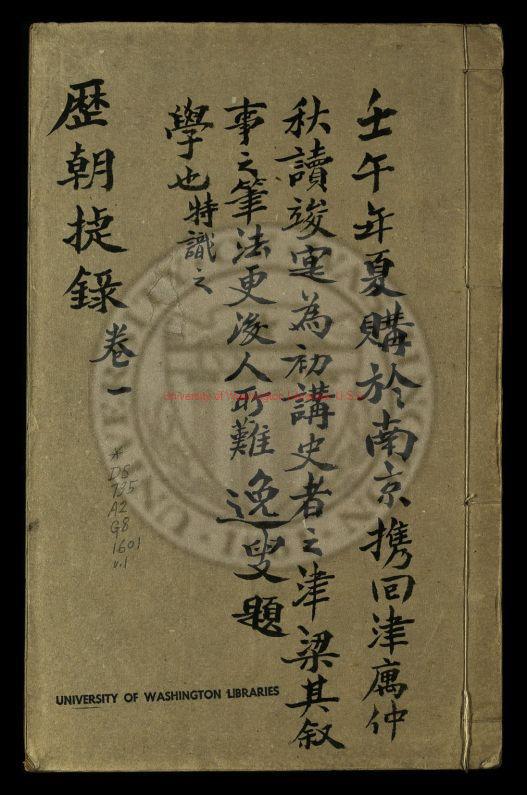 壬午年夏購於南京携回津寓仲
秋讀竣寔為初講史者之津梁其叙
事之筆法更後人所難
學也特識之
逸叟題
歷朝捷錄卷一
*
DS
735
A2
G8
1601
v.1
University of Washington Libraries, U.S.A.
UNIVERSITY OF WASHINGTON LIBRARIES